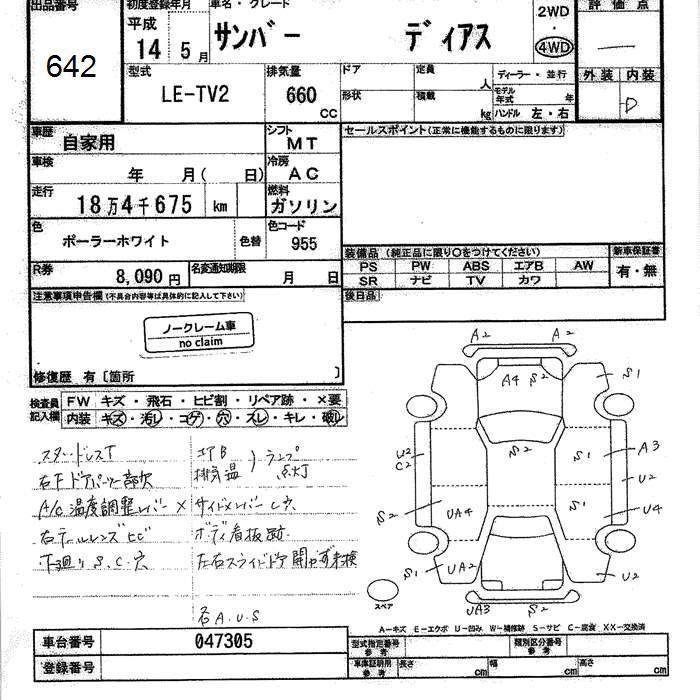 出品番号 初度登録年月 車名・グレード 2WD 評価点
642 平成 14 5月 サンバー ディアス ・ 4WD
型式 排気量 ドア 定員 人 ディーラー・並行 外装 内装
LE-TV2 660 CC 形状 積載 kg モデル年式 年 D
ハンドル 左・右
車歴 自家用 シフト MT セールスポイント(正常に機能するものに限ります)
車検 年 月( 日) 冷房 AC
走行 18万4千675 km 燃料 ガソリン
色 ポーラーホワイト 色替 色コード 955
装備品 (純正品に限り○をつけてください) 新車保証書
R券 8,090円 名変通知期限 月 日 PS PW ABS エアB AW 有・無
SR ナビ TV カワ
注意事項申告欄(不具合内容等は具体的に記入して下さい) 後日品
ノークレーム車
no claim
修復歴 有〔箇所 〕
検査員記入欄 FW キズ・飛石・ヒビ割・リペア跡・×要
内装 キズ・汚レ・コゲ・穴・スレ・キレ・破レ
スタッドレスT エアB
排気温 ランプ点灯
右Fドアパーツ一部欠
A/C温度調整レバー× サイドメンバーし穴
右テールレンズヒビ ボディ看板跡
下廻りS.C.穴 左右スライドドア開かず未検
右A.U.S
A2 A2
A4 S2 S1
U2 C2 S2 S1 A3
U2
S2 UA4 S1 U4
S1 UA2 U2
UA3 S2
スペア
A-キズ E-エクボ U-凹み W-補修跡 S-サビ C-腐食 XX-交換済
車台番号 047305 型式指定番号 参考 類別区分番号 参考
登録番号 車庫証明用 参考 長さ cm 幅 cm 高さ cm